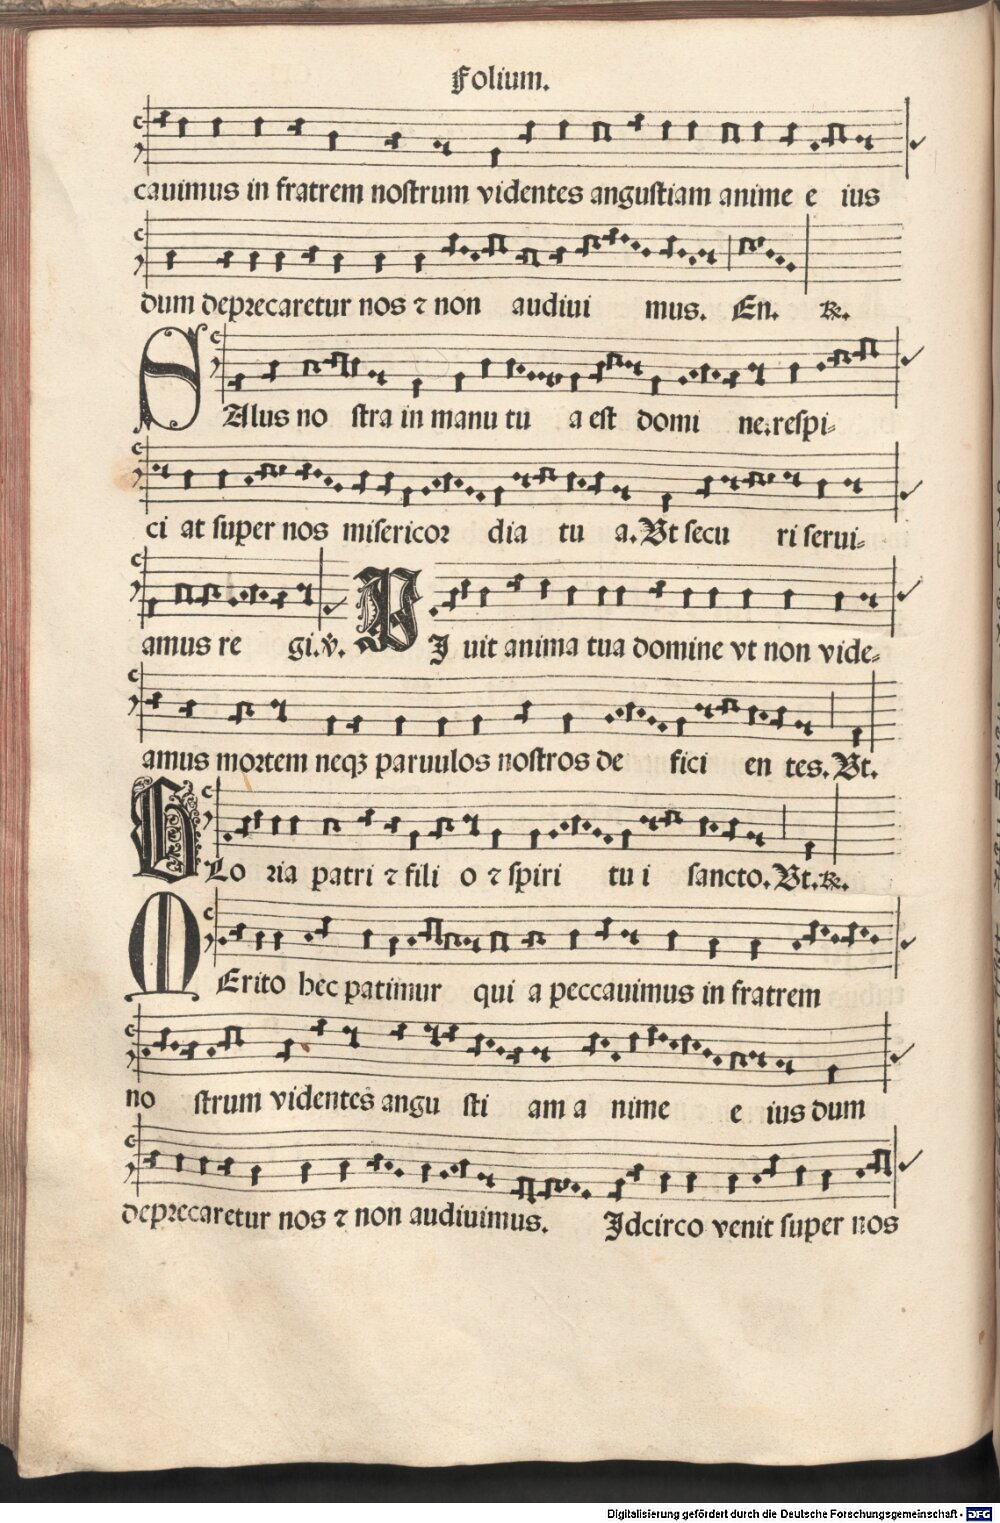 Folium.
cauimus in fratrem nostrum videntes angustiam anime e ius
dum deprecaretur nos ⁊ non audiui mus. En. ℟.
SAlus no stra in manu tu a est domi ne.respi⸗
ci at super nos misericor dia tu a. Vt secu ri serui⸗
amus re gi.℣. VJ uit anima tua domine vt non vide⸗
amus mortem neqꝫ paruulos nostros de fici en tes. Vt.
GLo ria patri ⁊ fili o ⁊ spiri tu i sancto. Vt.℟.
MErito hec patimur qui a peccauimus in fratrem
no strum videntes angu sti am a nime e ius dum
deprecaretur nos ⁊ non audiuimus. Jdcirco venit super nos
Digitalisierung gefördert durch die Deutsche Forschungsgemeinschaft - DFG